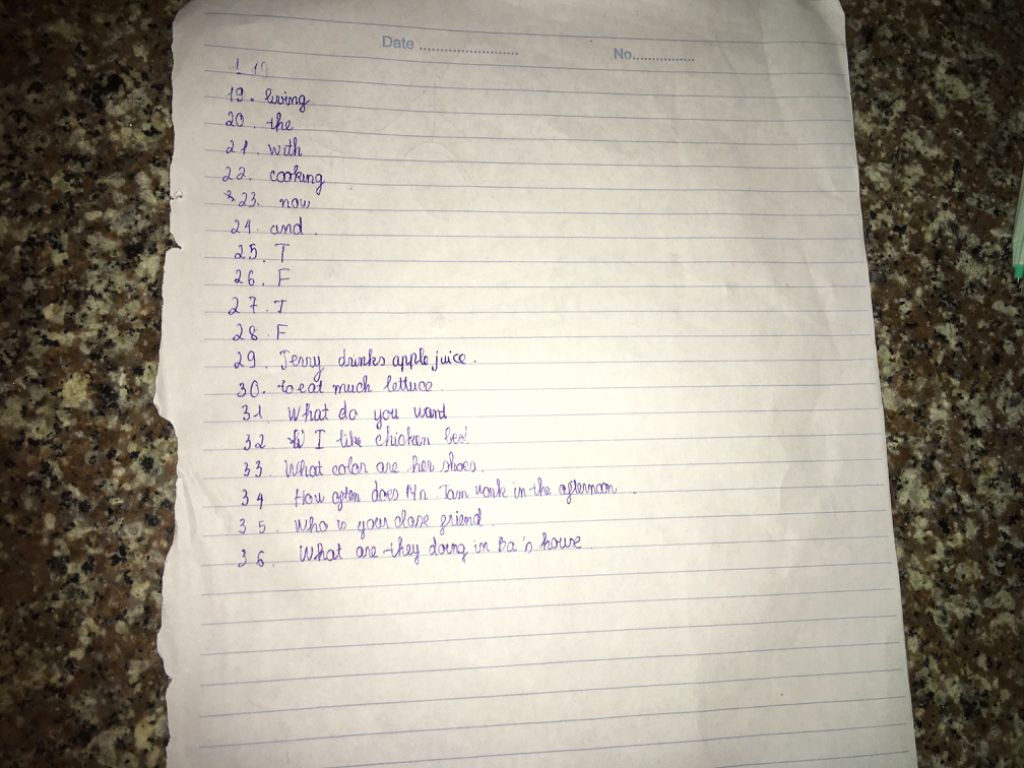 Date ........................ No...............
19. living
20. the
21. with
22. cooking
23. now
24. and.
25. T
26. F
27. T
28. F
29. Jerry drinks apple juice.
30. to eat much lettuce.
31. What do you want
32 I like chicken
33. What color are her shoes.
34 How often does Mr Tam work in the afternoon.
35. Who is your close friend.
36. What are they doing in Ba's house.